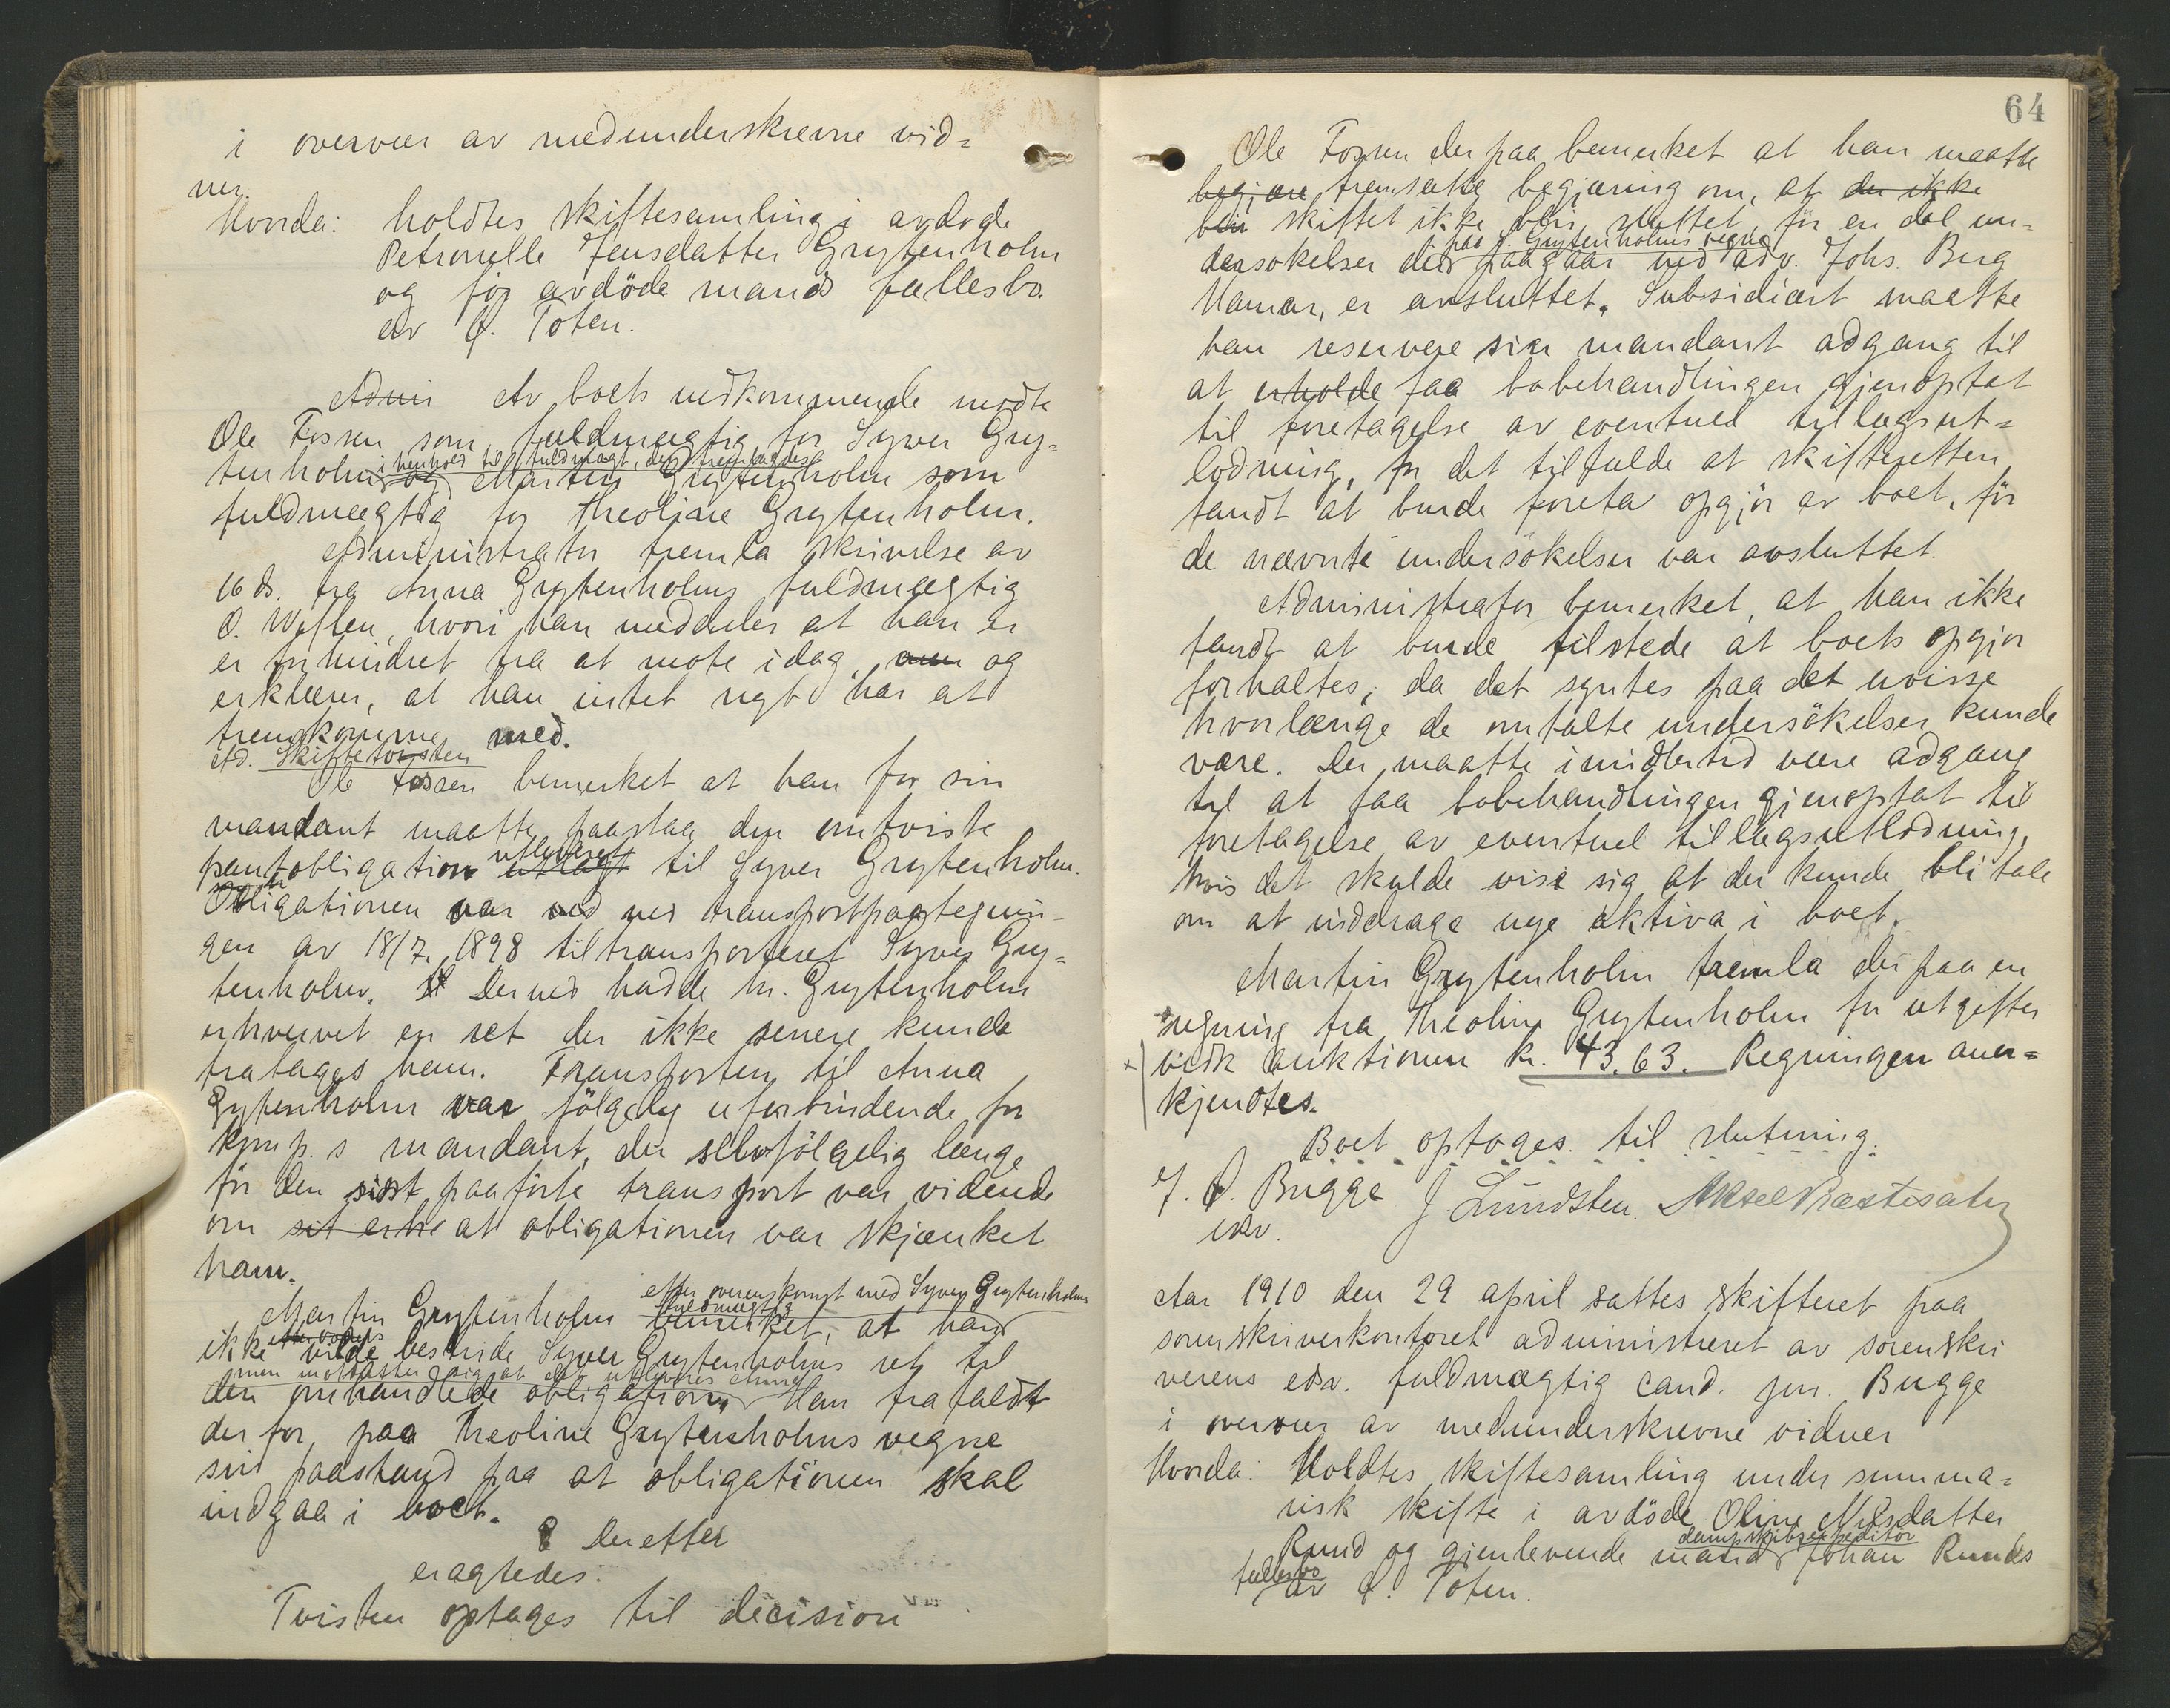 i overvær av medunderskrevne vid=
ner.
Hvorda: holdtes skiftesamling i avdøde
Petronelle Jensdatter Grytenholm
og før avdöde mands fællesbo.
av Ø. Toten.
Admi Av boets vedkommende mødte
Ole Fossen som fuldmægtig for Syver Gry=
i henhold til fuldmagt, der fremlagdes
tenholm og Martin Grytenholm som
fuldmægtig for Theoline Grytenholm.
Administrator fremla skrivelse av
16 ds. fra Anna Grytenholms fuldmægtig
O. Weflen, hvori han meddeler at han er
er forhindret fra at møte idag, men og
erklærer, at han intet nyt har at
fremkomme med.
Ad. Skiftetvisten
Ole Fossen bemerket at han for sin
mandant maatte paastaa den omtviste
utleveret
pantobligation utlagt til Syver Grytenholm.
Obligationen var ved ved transportpaategnin-
gen av 18/7. 1898 tiltransporteret Syver Gry=
tenholm. Derved hadde hr. Grytenholm
erhvervet en ret der ikke senere kunde
fratages ham. Transporten til Anna
Grytenholm var fölgelig uforbindende for
komp.s mandant, der selvfölgelig længe
før den sidst paaförte transport var vidende
om sit erhv at obligationen var skjænket
ham.
efter overenskomst med Syver Grytenholms
fuldmægtig
Martin Grytenholm bemerket, at han
ikke vilde bestride Syver Grytenholms ret til
men motsatter sig at den utleveres Anna
den omhandlede obligation. Han frafaldt
derfor, paa Theoline Grytenholms vegne
sin paastand paa at obligationen skal
indgaa i boet.
Derefter
eragtedes:
Tvisten optages til decision
64
Ole Fossen derpaa bemerket at han maatte
begjære fremsætte begjæring om, at der ikke
blir skiftet ikke blir sluttet, för en del un-
paa S. Grytenholms vegne
dersøkelser der paagaar ved adv. Johs. Berg
Hamar, er avsluttet. Subsidiært maatte
han reservere sin mandant adgang til
at erholde faa bobehandlingen gjenoptat
til foretagelse av eventuel tillægsut=
lodning, for det tilfælde at skifteretten
fandt at burde foreta opgjör av boet, för
de nævnte undersøkelser var avsluttet.
Administrator bemerket, at han ikke
fandt at burde tilstede at boets opgjør
forhaltes, da det syntes paa det uvisse
hvorlænge de omtalte undersökelser kunde
vare. Der maatte imidlertid være adgang
til at faa bobehandlingen gjenoptat til
foretagelse av eventuel tillægsutlodning,
hvis det skulde vise sig at der kunde bli tale
om at inddrage nye aktiva i boet.
Martin Grytenholm fremla derpaa en
regning fra Theoline Grytenholm for utgifter
vedk auktionen kr. 43.63. Regningen aner=
kjendtes.
Boet optoges til slutning.
J. Ø. Bugge J. Lundsten. Aksel Præstesæter
edsv.
Aar 1910 den 29 april sattes skifteret paa
sorenskriverkontoret administreret av sorenskri
verens edsv. fuldmægtig cand. jur. Bugge
i overvær av medunderskrevne vidner
Hvorda: Holdtes skiftesamling under summa=
risk skifte i avdöde Oline Nilsdatter
dampskibsexpeditör
Rund og gjenlevende mand Johan Runds
fællesbo
av Ø. Toten.